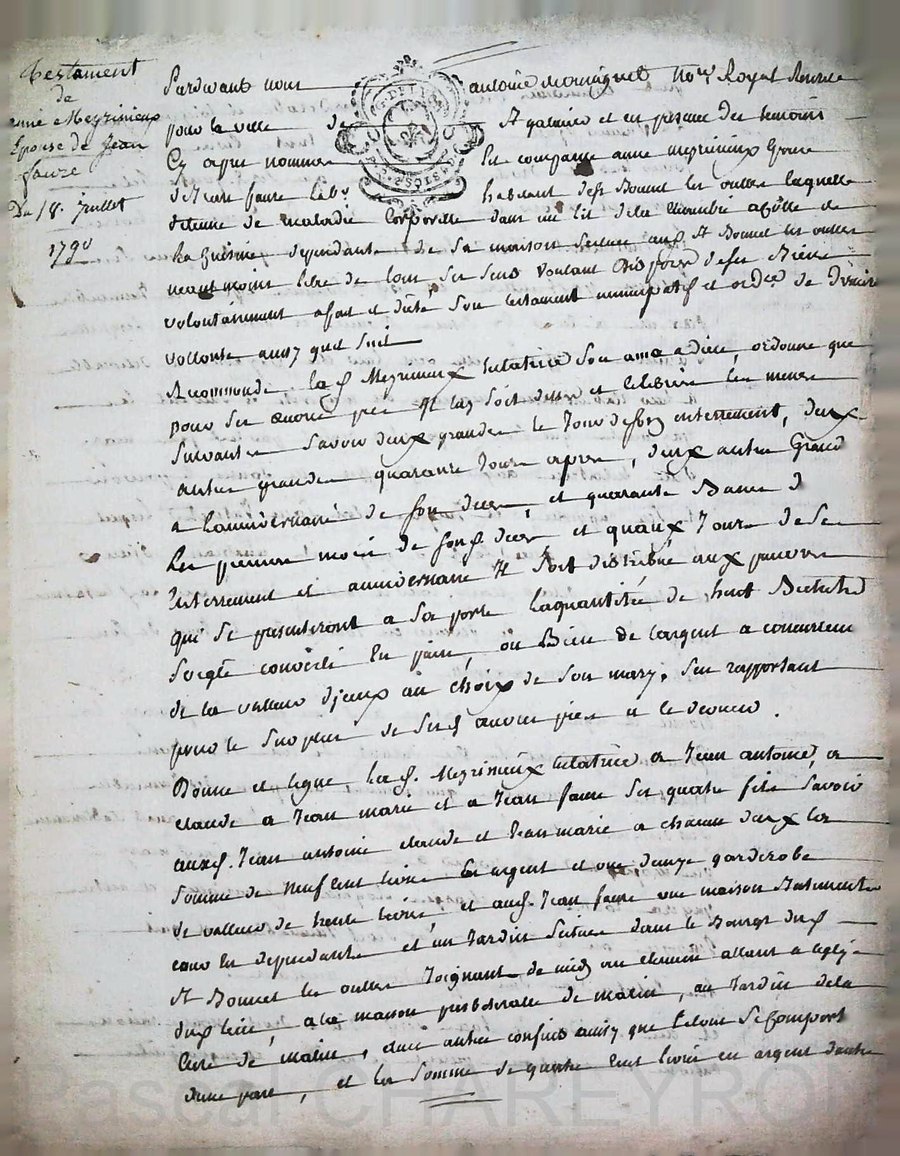 Testament
de
anne Meyrinieux
Epouse de Jean
faure
Du 18. Juillet
1790
Pardevant nous antoine No.re Royal
pour la ville de St galmier et en presence des temoins
Cy apres nommes En compara anne meyrinieux Epouse
de Jean faure habitant de St Bonnet les oulles laquelle
detenue de maladie corporelle dans un lit de la chambre a côté de
la Cuisine dependante de sa maison scituée aud. St Bonnet les oulles
neantmoins libre de tous ses sens voulant disposer de ses Biens
volontairement a fait et dicté son testament nuncupatif et ord.re de derniere
vollonté ainsy quil suit
Recommande lad. Meyrinieux testatrice son ame a dieu, ordonne que
pour ses œuvres pies Il luy soit dittes et celebrées les messes
suivantes savoir deux grandes le Jour de son enterrement, deux
autres grandes quarante Jours apres, deux autres Grand
a l'anniversaire de son deces, et quarante Basses d
les premiers mois de sond. deces et qu'aux Jours de ses
Enterrement et anniversaire Il soit distribué aux pauvres
qui se presenteront a sa porte la quantité de huit Bichets
seigle convertie En pain, ou Bien de l'argent a concurrence
de la valleur d'iceux au choix de son mary, s'en rapportant
pour le surplus de sesd. œuvres pies a
Donne et legue, lad. Meyrinieux testatrice a Jean antoine, a
claude a Jean marie et a Jean faure ses quatre fils savoir
auxd. Jean antoine claude et Jean marie a chacun deux la
somme de neuf cent livres En argent et une garderobe
de valleur de trente livres et aud. Jean faure une maison Batiments
cour En dependants et un Jardin scitués dans le Bourg dud.
St Bonnet les oulles Joignant de midy au chemin allant a leglise
dud. lieu, a la maison presbiterale de matin, au Jardin de la
Cure de matin, sauf autres confins ainsy que le tout se comport
dune part, et la somme de quatre cent livres en argent dautre
Pascal CHAREYRON